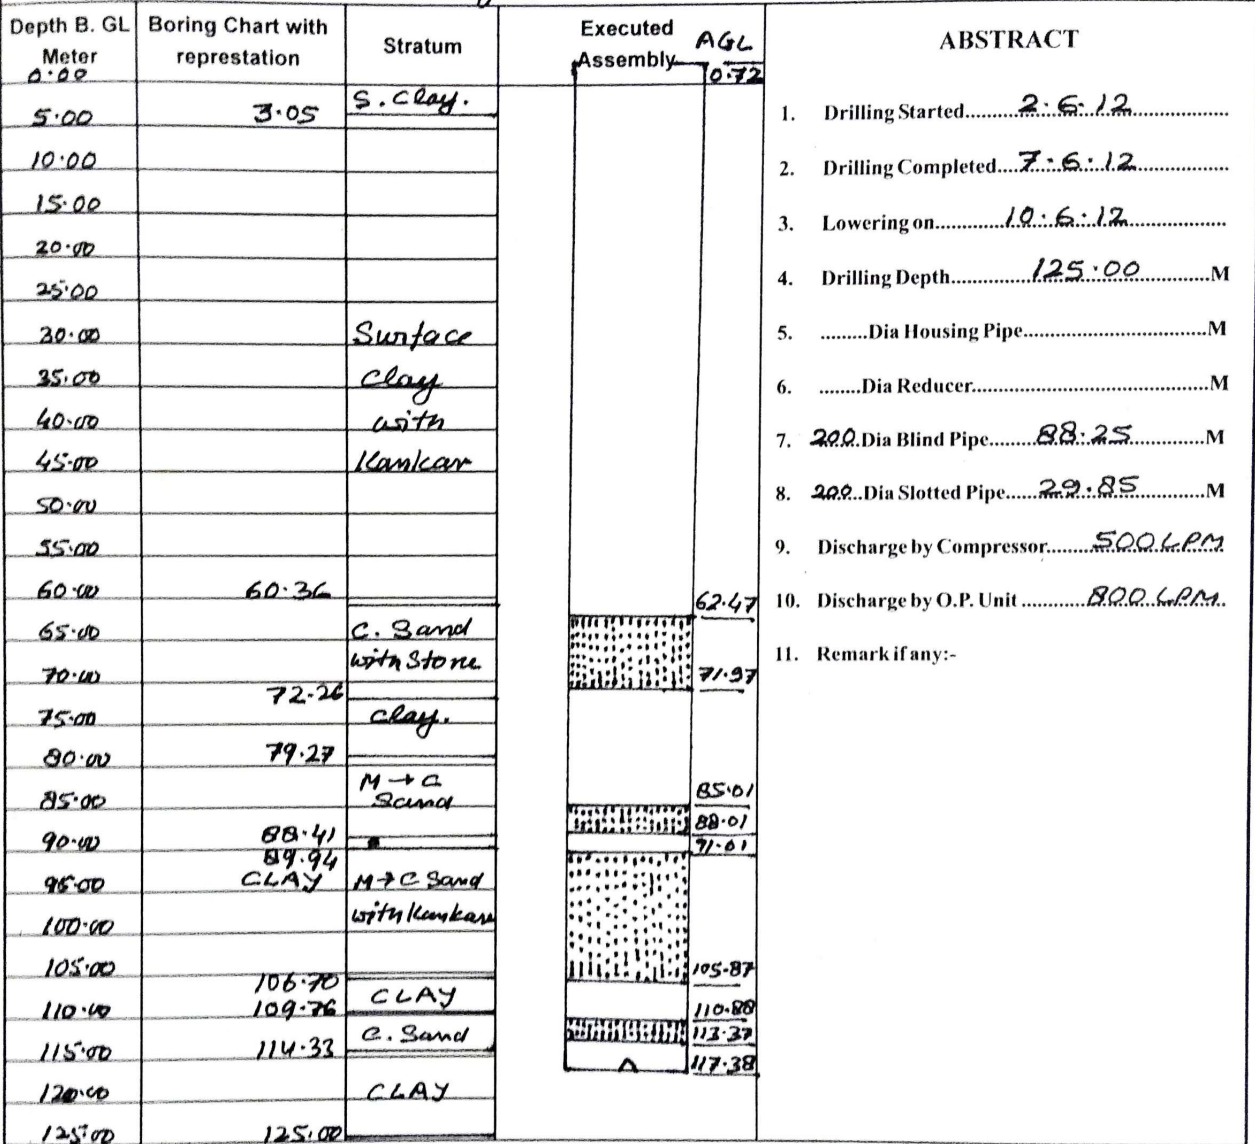 Depth B. GL Meter | Boring Chart with represtation | Stratum | Executed Assembly | AGL
0.00 | 0.72
S. Clay.
5.00 | 3.05
10.00
15.00
20.00
25.00
30.00 | Surface
35.00 | Clay
40.00 | with
45.00 | Kankar
50.00
55.00
60.00 | 60.36 | 62.47
65.00 | C. Sand
70.00 | with Stone | 71.97
72.26
75.00 | Clay.
80.00 | 79.27
M → C | 85.01
85.00 | Sand
88.01
90.00 | 88.41 | 91.01
89.94
95.00 | CLAY | M → C Sand
100.00 | with Kankar
105.00 | 105.87
106.70 | CLAY
110.00 | 109.76 | 110.88
C. Sand | 113.37
115.00 | 114.33 | 117.38
120.00 | CLAY
125.00 | 125.00
ABSTRACT
1. Drilling Started 2.6.12
2. Drilling Completed 7.6.12
3. Lowering on 10.6.12
4. Drilling Depth 125.00 M
5. ........Dia Housing Pipe M
6. ........Dia Reducer M
7. 200 Dia Blind Pipe 88.25 M
8. 200 Dia Slotted Pipe 29.85 M
9. Discharge by Compressor 500 LPM
10. Discharge by O.P. Unit 800 LPM
11. Remark if any:-